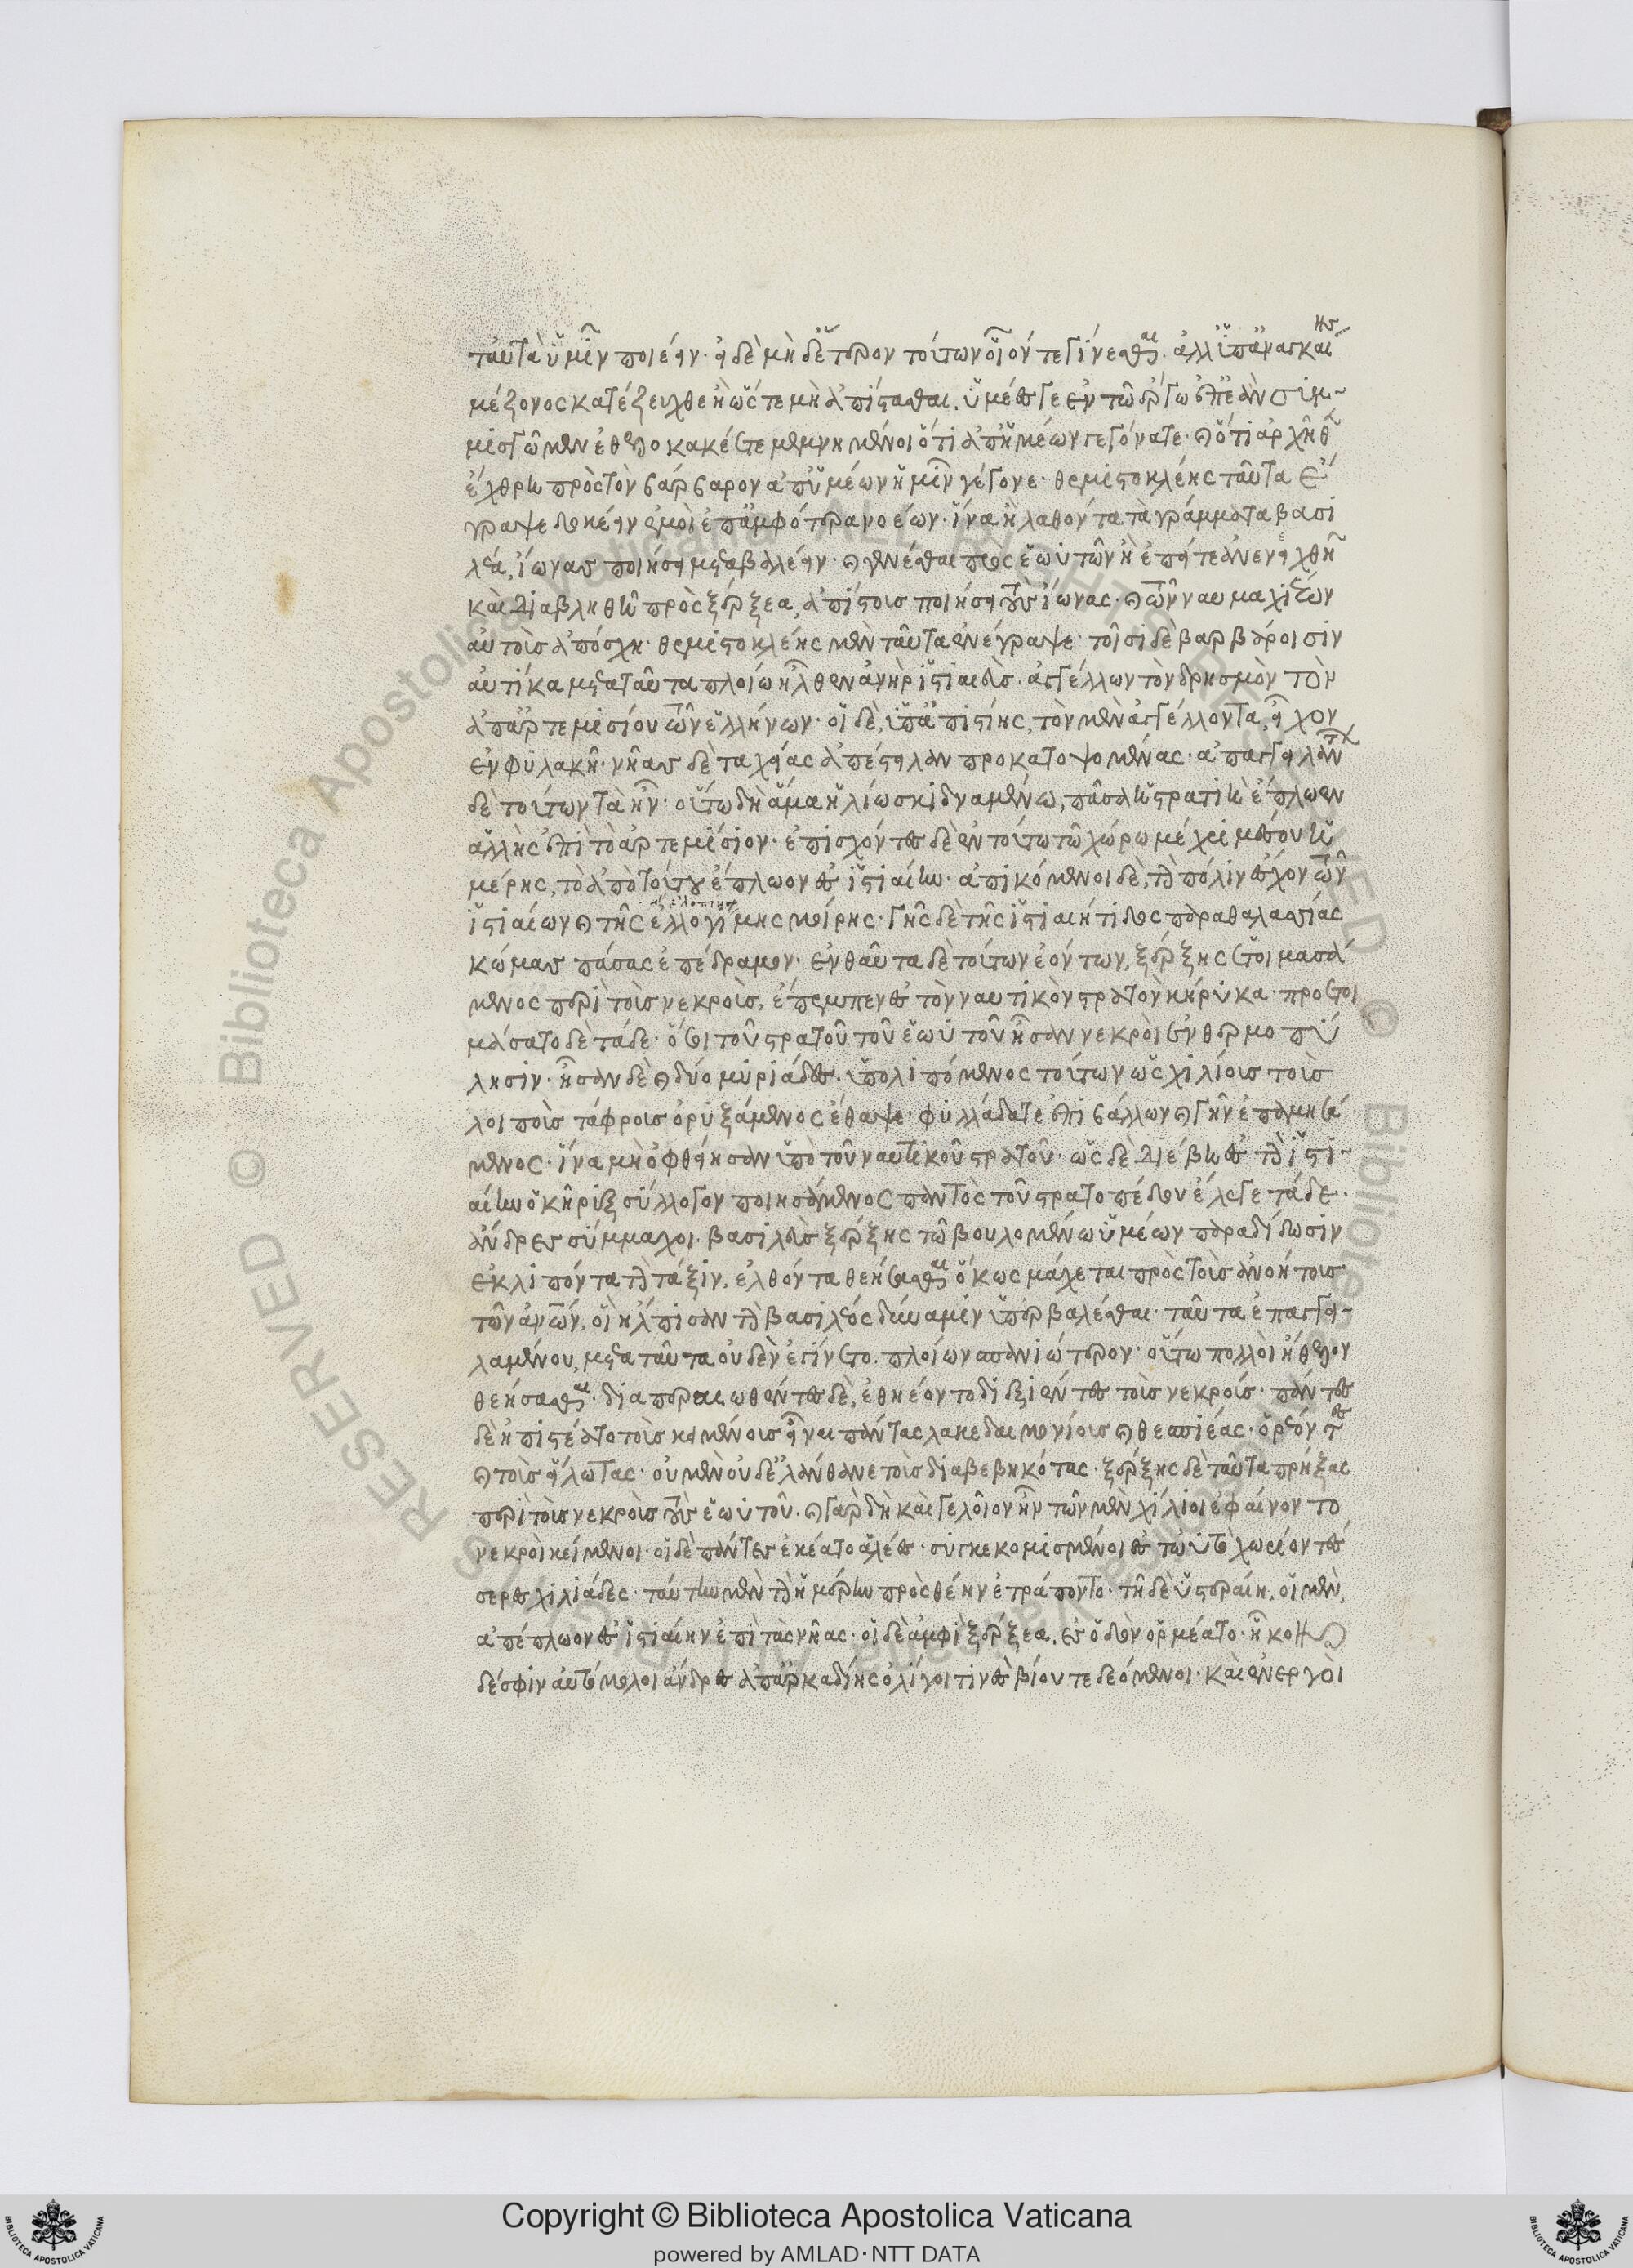 ταῦτα ὑμῖν ποιέειν· εἰ δὲ μηδέτερον τούτων οἷόν τε γίνεσθαι· ἀλλ' ὑπ' ἀναγκαίης
μέζονος κατέζευχθε ἢ ὥστε μὴ ἀπίστασθαι. ὑμὲς γε ἐν τῷ ἔργῳ ἐπεὰν συμ-
μίσγωμεν ἐθελοκακέετε μεμνημένοι ὅτι ἀπ' ἡμέων γεγόνατε· καὶ ὅτι ἀρχῆθεν
ἔχθρη πρὸς τὸν βάρβαρον ἀπ' ὑμέων ἡμῖν γέγονε· θεμιστοκλέης ταῦτα ἔ
γραψε δοκέειν ἐμοὶ ἐπ' ἀμφότερα νοέων· ἵνα ἢ λαθόντα τὰ γράμματα βασι
λέα, ἴωνας ποιήσῃ μεταβαλέειν· καὶ γενέσθαι πρὸς ἑωυτῶν ἢ ἐπείτε ἀνενειχθῇ
καὶ διαβληθῇ πρὸς ξέρξεα, ἀπίστους ποιήσῃ τοὺς ἴωνας· καὶ τῶν ναυμαχιέων
αὐτοὺς ἀπόσχῃ· θεμιστοκλέης μὲν ταῦτα ἐνέγραψε· τοῖσι δὲ βαρβάροισιν
αὐτίκα μετὰ ταῦτα πλοίῳ ἦλθεν ἀνὴρ ἱστιαιεὺς. ἀγγέλλων τὸν δρησμὸν τὸν
ἀπ' ἀρτεμισίου τῶν ἑλλήνων· οἱ δὲ, ὑπ' ἀπιστίης, τὸν μὲν ἀγγέλλοντα, εἶχον
ἐν φυλακῇ· νῆας δὲ ταχείας ἀπέστειλαν προκατοψομένας· ἀπαγγειλάντων
δὲ τούτων τὰ ἦν· οὕτω δὴ ἅμα ἡλίῳ σκιδναμένῳ, πᾶσα ἡ στρατιὴ ἔπλωεν
ἁλὴς ἐπὶ τὸ ἀρτεμίσιον· ἐπισχόντες δὲ ἐν τούτῳ τῷ χώρῳ μέχρι μέσου ἡ
μέρης, τὸ ἀπὸ τούτου ἔπλωον ἐς ἱστιαίην· ἀπικόμενοι δὲ, τὴν πόλιν ἔσχον τῶν
ἱστιαίων καὶ τῆς ἐλλογίμης μοίρης· γῆς δὲ τῆς ἱστιαιήτιδος παραθαλασσίας
κώμας πάσας ἐπέδραμον· ἐνθαῦτα δὲ τούτων ἐόντων, ξέρξης ἑτοιμασά
μενος περὶ τοὺς νεκροὺς, ἔπεμπεν ἐς τὸν ναυτικὸν στρατὸν κήρυκα· προετοι
μάσατο δὲ τάδε· ὅσοι τοῦ στρατοῦ τοῦ ἑωυτοῦ ἦσαν νεκροὶ ἐν θερμοπύ
λῃσιν· ἦσαν δὲ καὶ δύο μυριάδες. ὑπολιπόμενος τούτων ὡς χιλίους τοὺς
λοιποὺς τάφρους ὀρυξάμενος ἔθαψε· φυλλάδα τε ἐπιβάλλων καὶ γῆν ἐπαμησά
μενος· ἵνα μὴ ὀφθείησαν ὑπὸ τοῦ ναυτικοῦ στρατοῦ· ὡς δὲ διέβη ἐς τὴν ἱστι-
αίην ὁ κῆρυξ σύλλογον ποιησάμενος παντὸς τοῦ στρατοπέδου ἔλεγε τάδε·
ἄνδρες σύμμαχοι· βασιλεὺς ξέρξης τῷ βουλομένῳ ὑμέων παραδίδωσιν
ἐκλιπόντα τὴν τάξιν, ἐλθόντα θεήσασθαι ὅκως μάχεται πρὸς τοὺς ἀνοήτους
τῶν ἀνων, οἳ ἤλπισαν τὴν βασιλέος δύναμιν ὑπερβαλέσθαι· ταῦτα ἐπαγγει-
λαμένου, μετὰ ταῦτα οὐδὲν ἐγίνετο. πλοίων σπανιώτερον· οὕτω πολλοὶ ἤθελον
θεήσασθαι· διαπεραιωθέντες δὲ, ἐθηέοντο διεξιόντες τοὺς νεκροὺς· πάντες
δὲ ἠπιστέατο τοὺς κειμένους εἶναι πάντας λακεδαιμονίους καὶ θεσπιέας· ὁρέοντες
καὶ τοὺς εἵλωτας· οὐ μὲν οὐδ' ἐλάνθανε τοὺς διαβεβηκότας· ξέρξης δὲ ταῦτα πρήξας
περὶ τοὺς νεκροὺς τοὺς ἑωυτοῦ. καὶ γὰρ δὴ καὶ γελοῖον ἦν τῶν μὲν χίλιοι ἐφαίνοντο
νεκροὶ κείμενοι· οἱ δὲ πάντες ἐκέατο ἁλέες· συγκεκομισμένοι ἐς τὠυτὸ χωρίον τέσ
σερες χιλιάδες· ταύτην μὲν τὴν ἡμέρην πρὸς θέην ἐτράποντο· τῇ δὲ ὑστεραίῃ, οἱ μὲν,
ἀπέπλωον ἐς ἱστιαίην ἐπὶ τὰς νῆας· οἱ δὲ ἀμφὶ ξέρξεα, ἐς ὁδὸν ὁρμέατο· ἧκον
δέ σφιν αὐτόμολοι ἄνδρες ἀπ' ἀρκαδίης ὀλίγοι τινὲς βίου τε δεόμενοι· καὶ ἐνεργοὶ